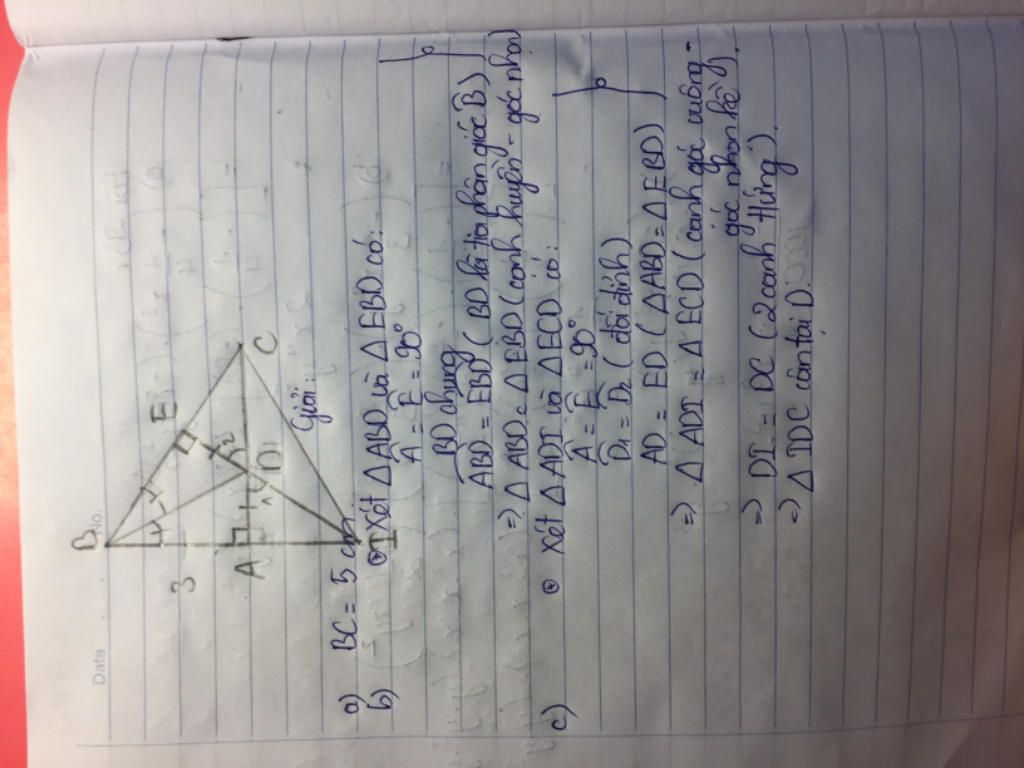 No.
Date
B
E
2
D
1
C
3
A
I
Giải:
a) BC = 5 cm
b) Xét ΔABD và ΔEBD có:
Â = Ê = 90°
BD chung
ABD = EBD (BD là tia phân giác B)
=> ΔABD = ΔEBD (cạnh huyền - góc nhọn)
c) Xét ΔADI và ΔECD có:
Â = Ê = 90°
D1 = D2 (đối đỉnh)
AD = ED (ΔABD = ΔEBD)
=> ΔADI = ΔECD (cạnh góc vuông -
góc nhọn kề).
=> DI = DC (2 cạnh tứng).
=> ΔIDC cân tại D.